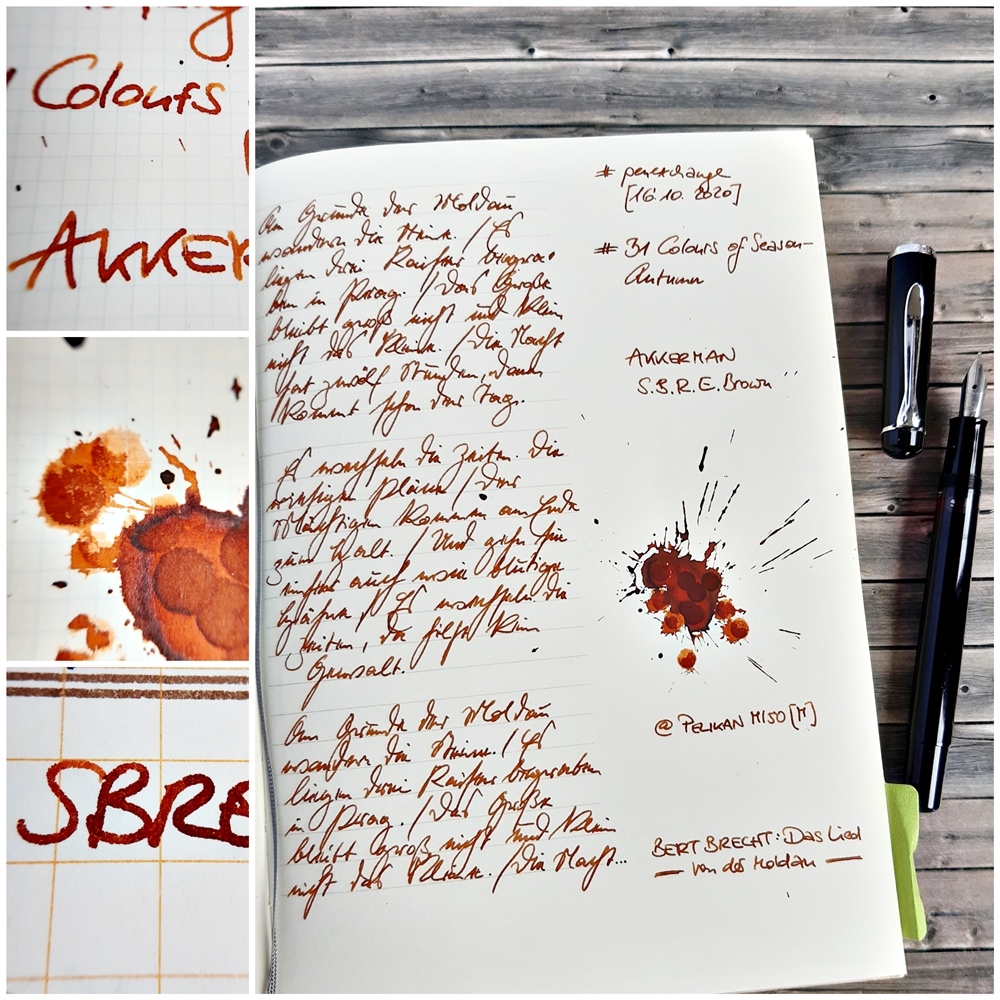 Colours
AKKER
SBRE
Am Grunde der Moldau
wandern die Steine. / Es
liegen drei Kaiser begra-
ben in Prag. / Das Große
bleibt groß nicht und klein
nicht das Kleine. / Die Nacht
hat zwölf Stunden, dann
kommt schon der Tag.
Es wechseln die Zeiten. Die
riesigen Pläne / der
Mächtigen kommen am Ende
zum Halt. / Und gehn sie
einher auch wie blutige
Hähne, / Es wechseln die
Zeiten, da hilft kein
Gewalt.
Am Grunde der Moldau
wandern die Steine. / Es
liegen drei Kaiser begraben
in Prag. / Das Große
bleibt groß nicht und klein
nicht das Kleine. / Die Nacht...
# penexchange
[16.10.2020]
# 31 Colours of Season-
Autumn
AKKERMAN
S.B.R.E. Brown
@ PELIKAN M150 [M]
BERT BRECHT: Das Lied
— von der Moldau —